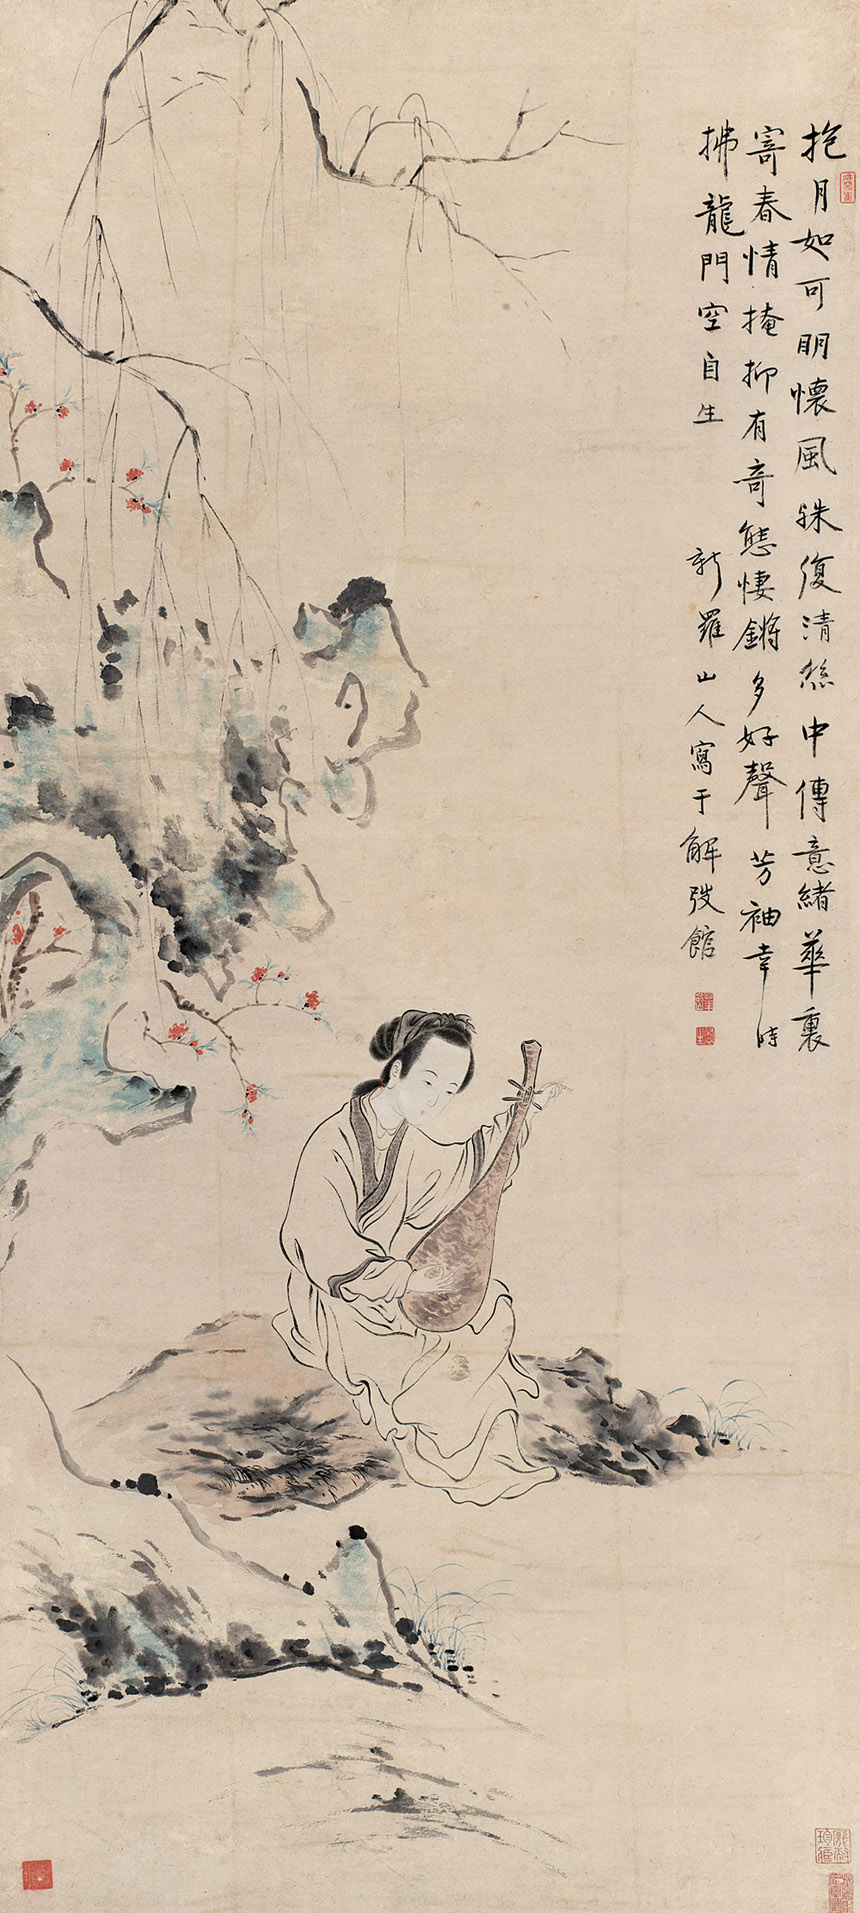 抱月如可明懷風殊復清絲中傳意緒華裏
寄春情掩抑有奇態悽鏘多好聲芳袖幸時
拂龍門空自生
新羅山人寫于解弢館